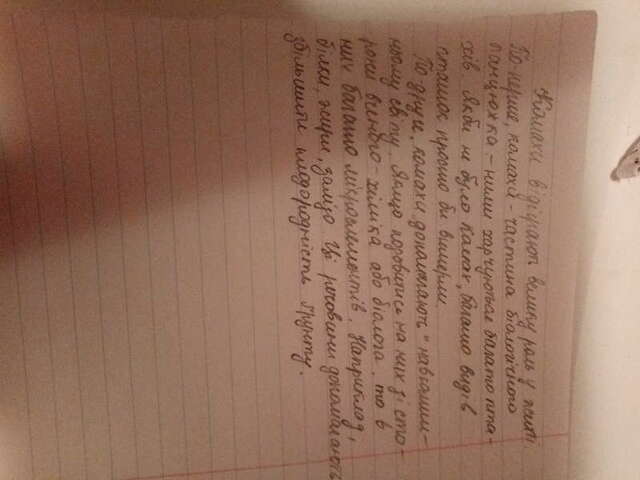 Комахи відіграють велику роль у житті.
По-перше, комаха - частина біологічного
ланцюжка - ними харчуються багато пта-
хів. Якби не було комах, багато видів
пташок просто би вимерли.
По-друге, комахи допомагають навколиш-
ньому світу. Якщо подивитись на них зі сто-
рони вченого-хіміка або біолога, то в
них багато мікроелементів. Наприклад,
білки, жири, залізо. Ці речовини допомагають
збільшити плодородність ґрунту.